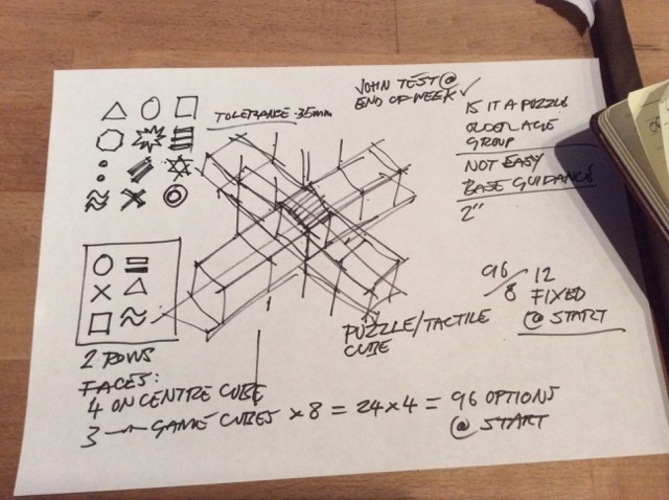 JOHN TEST @
END OF WEEK ✓
TOLERANCE .35mm
IS IT A PUZZLE
OLDER AGE
GROUP
NOT EASY
BASE GUIDANCE
2"
96/8
12
FIXED
@ START
PUZZLE/TACTILE
CUBE
2 ROWS
FACES:
4 ON CENTRE CUBE
3 — GAME CUBES × 8 = 24 × 4 = 96 OPTIONS
@ START